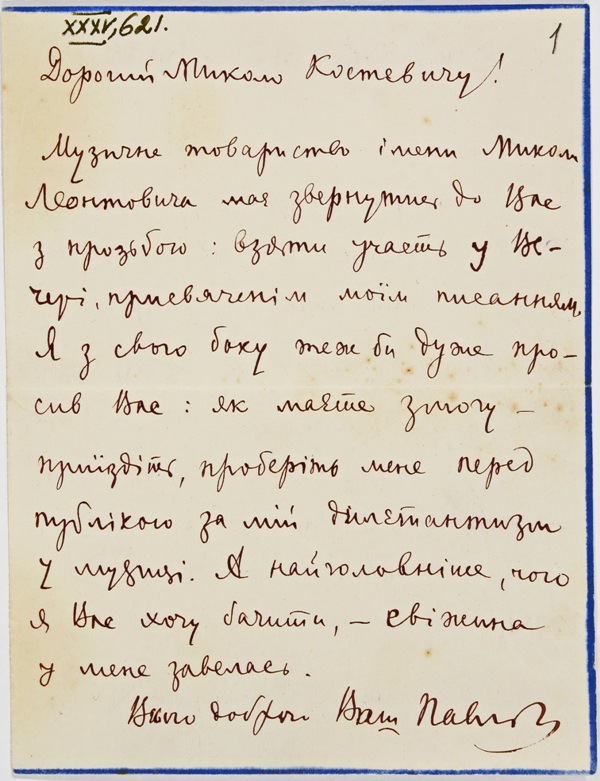 XXXV, 621.
1
Дорогий Миколо Костевичу!
Музичне товариство імени Миколи
Леонтовича має звернутись до Вас
з прозьбою: взяти участь у Ве-
чері, присвяченім моїм писанням.
Я з свого боку теж би дуже про-
сив Вас: як маєте змогу –
приїздіть, проберіть мене перед
публікою за мій дилєтантизм
у музиці. А найголовніше, чого
я Вас хочу бачити, – свіжина
у мене завелась.
Всього доброго Ваш